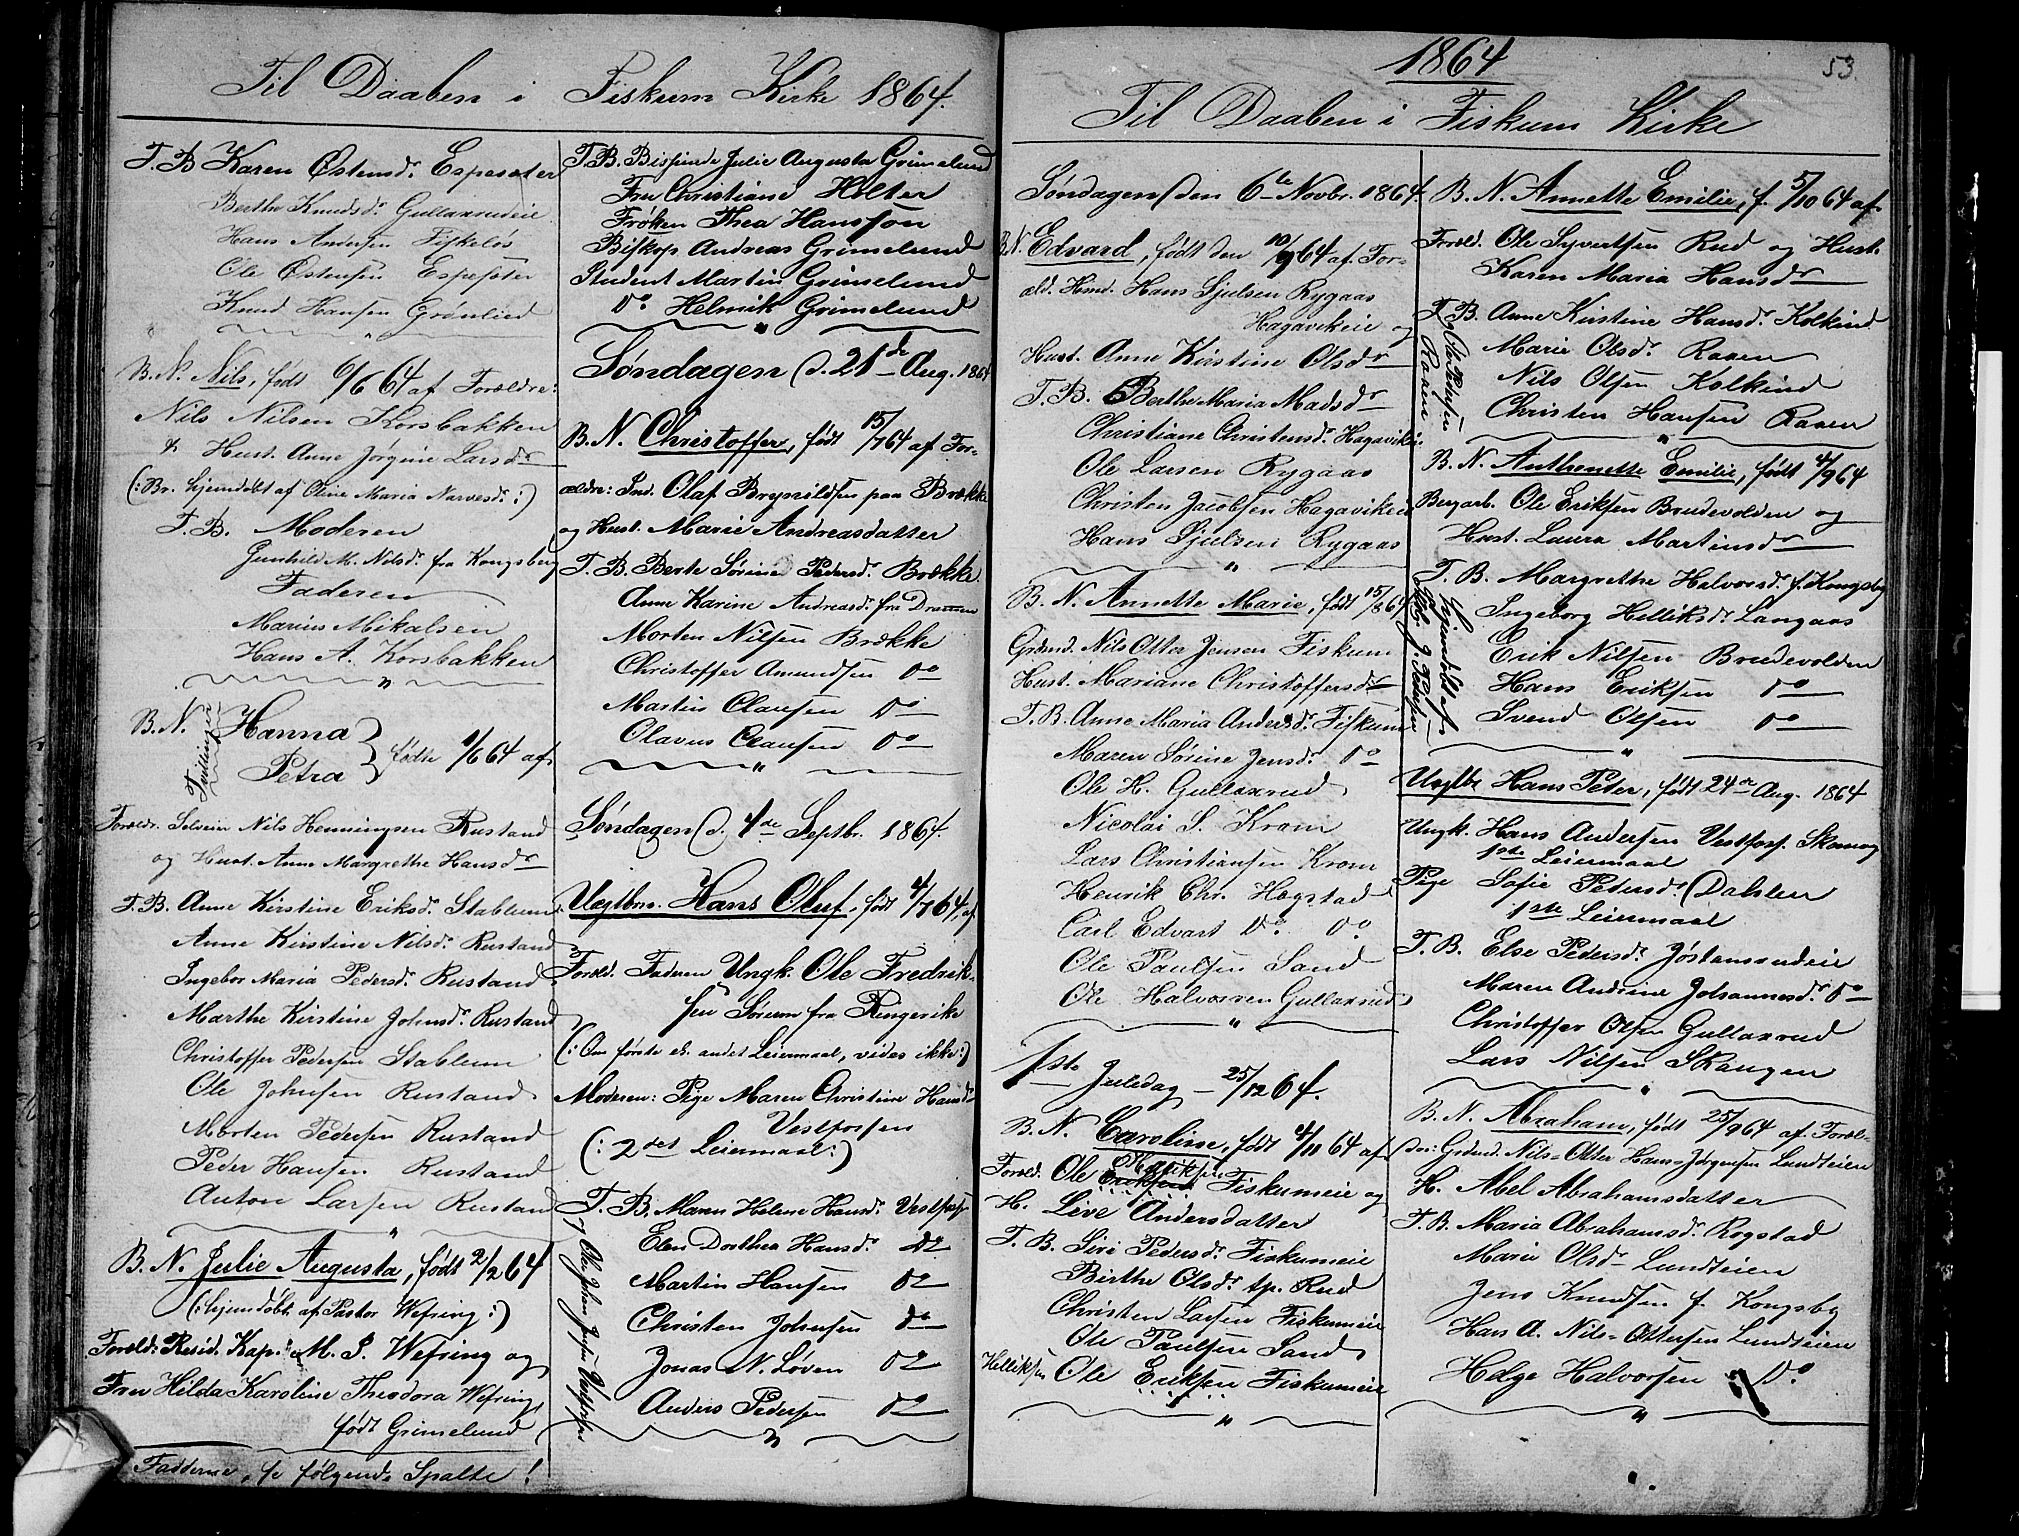 Til Daaben i Fiskum Kirke 1864.
T. B. Karen Østensdr. Espeseter
Berthe Knudsdr. Gullaxrudeie
Hans Andersen Fiskeløs
Ole Østensen Espeseter
Knud Hansen Grønlied
B. N. Nils, født 6/6 64 af Forældre:
Nils Nilsen Korsbakken
& Hust. Anne Jørgine Larsdr
(: Br. hjemdøbt af Oline Maria Narvesdr. :)
T. B. Moderen
Gunhild M. Nilsdr. fra Kongsberg
Faderen
Marius Mikalsen
Hans A. Korsbakken
B. N. Hanna
Petra } fødte 1/6 64 af
Tvillinger
Foreldr. Selveier Nils Henningsen Rustand
og Hust. Anne Margrethe Hansdr
T. B. Anne Kirstine Eriksdr. Stablum
Anne Kirstine Nilsdr. Rustand
Ingebor Maria Pedersdr. Rustand
Marthe Kirstine Johnsdr. Rustand
Christoffer Pedersen Stablum
Ole Johnsen Rustand
Morten Pedersen Rustand
Peder Hansen Rustand
Anton Larsen Rustand
B. N. Julie Augusta, født 2/2 64
(: hjemdøbt af Pastor Wefring :)
Foreld: Resid. Kap. M. S. Wefring og
Fru Hilda Karoline Theodora Wefring,
født Grimelund
Fadderne, se følgende Spalte!
T. B. Bispinde Julie Augusta Grimelund
Fru Christiane Holter
Frøken Thea Hansson
Biskop Andreas Grimelund
Student Martin Grimelund
Do Helmik Grimelund
Søndagen d. 21de Aug. 1864
B. N. Christoffer, født 15/7 64 af For-
ældre: Ind. Olaf Brynildsen paa Brække
og Hust. Marie Andreasdatter
T. B. Berte Sørine Pedersdr. Brække
Anne Karine Andreasdr. fra Drammen
Morten Nilsen Brække
Christoffer Amundsen Do
Martin Clausen Do
Olavus Clausen Do
Søndagen d. 4de Septbr. 1864.
Uægtbn. Hans Oluf, født 4/7 64 af
Foreld. Faderen Ungk. Ole Fredrik-
sen Sørum fra Ringerike
(: Om første el. andet Leiermaal, vides ikke :)
Moderen: Pige Maren Christine Hansdr
Vestfossen
(: 2det Leiermaal :)
T. B. Maren Helene Hansdr. Vestfoss
Elen Dorthea Hansdr. Do
Martin Hansen Do
Christen Johnsen Do
Jonas N. Løven Do
Anders Pedersen Do
og Ole Johan Vestfossen
1864
53.
Til Daaben i Fiskum Kirke
Søndagen den 6te Novbr. 1864.
B. N. Edvard, født den 10/9 64 af For-
æld. Hmd. Hans Sjulsen Rygaas
Hagavikeie og
Hust. Anne Kirstine Olsdr
T. B. Berthe Maria Madsdr
Christiane Christensdr. Hagavikeie
Ole Larsen Rygaas
Christen Jacobsen Hagavikeie
Hans Sjulsen Rygaas
B. N. Annette Marie, født 15/8 64
Grdmd. Nils Otter Jensen Fiskum
Hust. Mariane Christoffersdr
T. B. Anne Maria Andersdr. Fiskum
Maren Sørine Jensdr. Do
Ole H. Gullaxrud
Nicolai S. Krom
Lars Christiansen Krom
Henrik Chr. Hogstad
Carl Edvart Do Do
Ole Paulsen Sand
Ole Halvorsen Gullaxrud
1ste Juledag – 25/12 64.
B. N. Caroline, født 4/11 64 af
Foreld. Ole Eriksen Helliksen Fiskumeie og
H. Live Andersdatter
T. B. Siri Pedersdr. Fiskumeie
Birthe Olsdr. tp. Rud
Christen Larsen Fiskumeie
Ole Paulsen Sand
Helliksen Ole Eriksen Fiskumeie
B. N. Annette Emilie, f. 5/10 64 af
Foreld. Ole Syvertsen Rud og Hust.
Karen Maria Hansdr
T. B. Anne Kirstine Hansdr. Kolkind
Marie Olsdr. Raaen
Nils Olsen Kolkind
Christen Hansen Raaen
og Ola Raaen
B. N. Anthonette Emilie, født 4/9 64
Bergarb. Ole Eriksen Brudevolden og
Hust. Laura Martinsdr
T. B. Margrethe Halvorsdr. f. Kongsbg
Ingeborg Helliksdr. Langaas
Erik Nilsen Brudevolden
Hans Eriksen Do
Svend Olsen Do
hjemdøbt af
Uægtbn Hans Peter, født 24de Aug. 1864
Ungk. Hans Andersen Vestfoss. Skoug
1ste Leiermaal
Pige Sofie Pedersdr. Dahlen
1ste Leiermaal
T. B. Else Pedersdr. Jøstensrudeie
Maren Andrine Johannesdr. Do
Christoffer Olsen Gullaxrud
Lars Nilsen Skaugen
B. N. Abraham, født 25/9 64 af Foræl-
dre: Grdmd. Nils-Otter Hans-Jørgensen Lundteien
H. Abel Abrahamsdatter
T. B. Maria Abrahamsdr. Rogstad
Marie Olsd Lundteien
Jens Knudsen f. Kongsbg
Hans A. Nils-Ottersen Lundteien
Helge Halvorsen Do